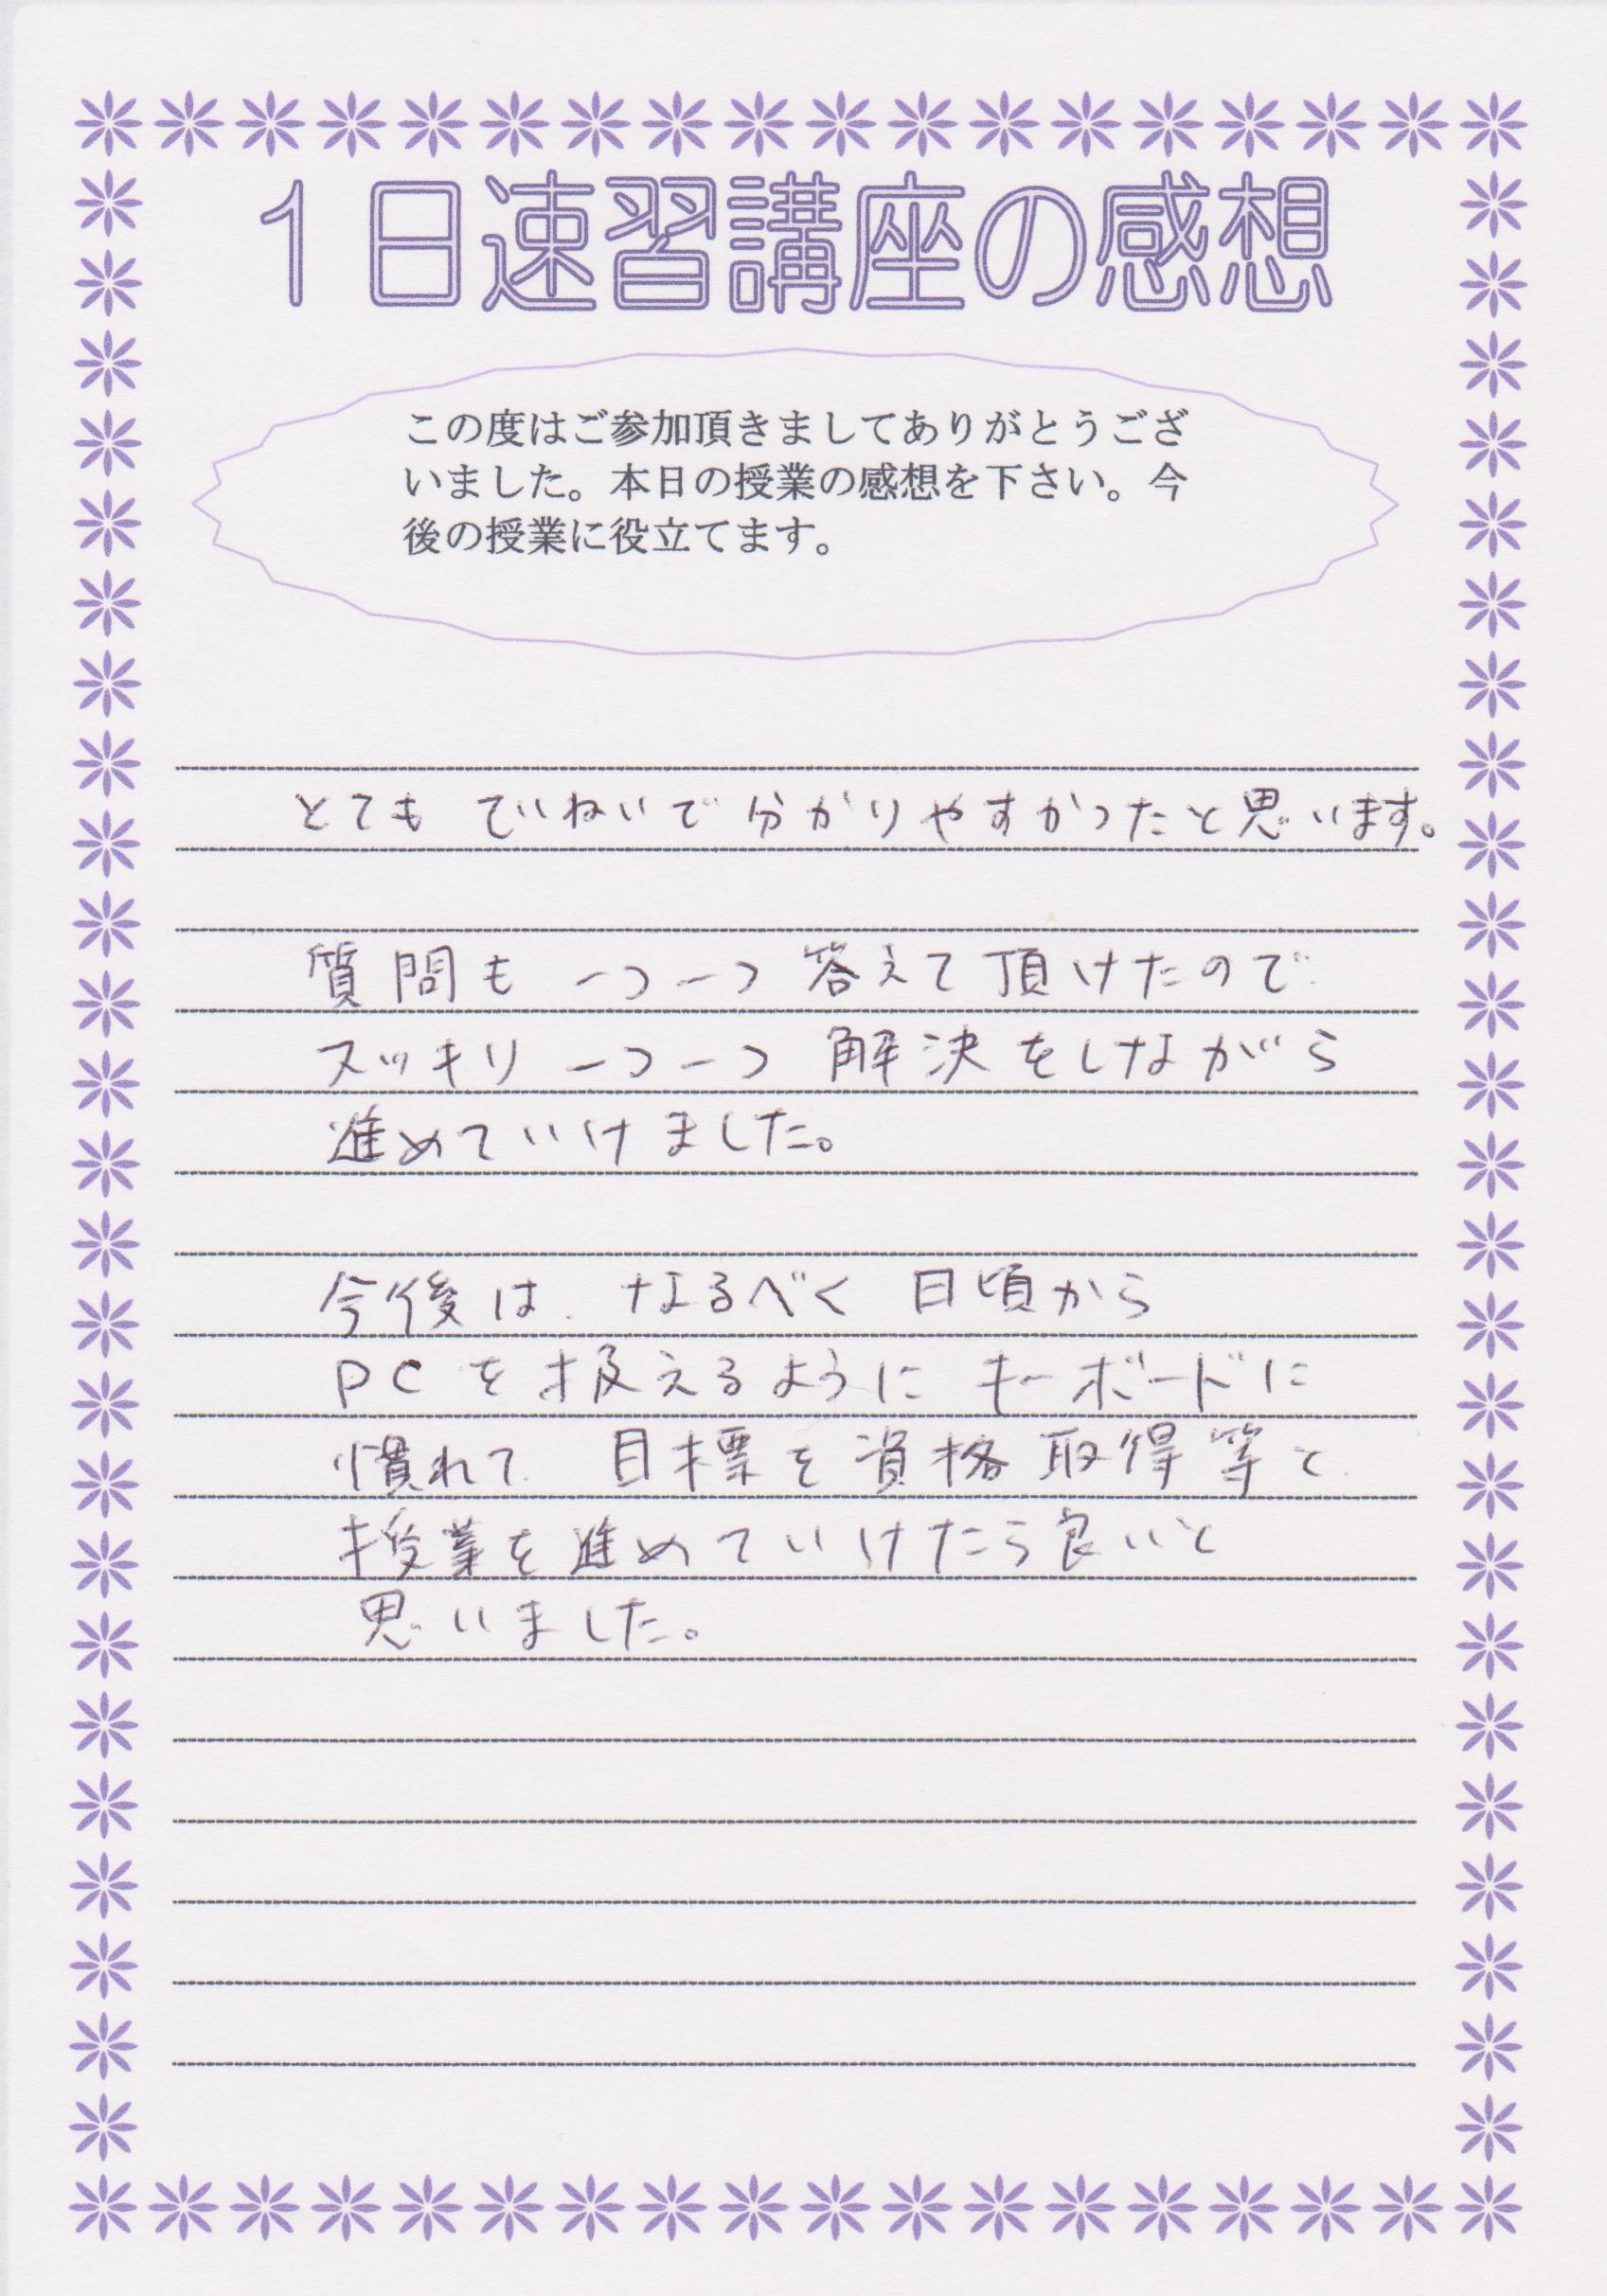 1日速習講座の感想
この度はご参加頂きましてありがとうござ
いました。本日の授業の感想を下さい。今
後の授業に役立てます。
とても ていねいで分かりやすかったと思います。
質問も 一つ一つ 答えて頂けたので
スッキリ 一つ一つ 解決をしながら
進めていけました。
今後は、なるべく 日頃から
PCを扱えるように キーボードに
慣れて 目標を資格取得等と
授業を進めていけたら良いと
思いました。